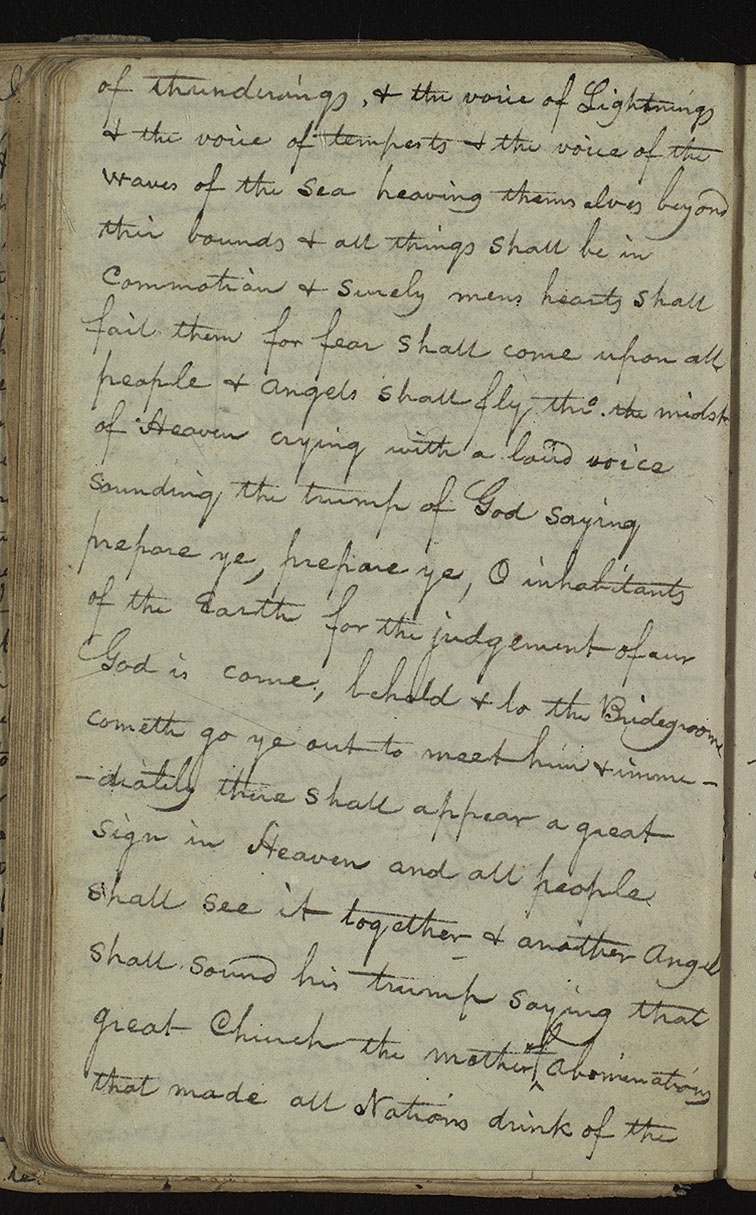 of thunderings, & the voice of Lightnings
& the voice of tempests & the voice of the
waves of the Sea heaving themselves beyond
their bounds & all things shall be in
Commotion & surely mens hearts shall
fail them for fear shall come upon all
people & angels shall fly thro. the midst
of Heaven crying with a loud voice
sounding the trump of God saying
prepare ye, prepare ye, O inhabitants
of the Earth for the judgement of our
God is come, behold & lo the Bridegroome
cometh go ye out to meet him & imme-
-diately there shall appear a great
sign in Heaven and all people
shall see it together & another Angel
shall sound his trump saying that
great Church the mother of abominations
that made all Nations drink of the